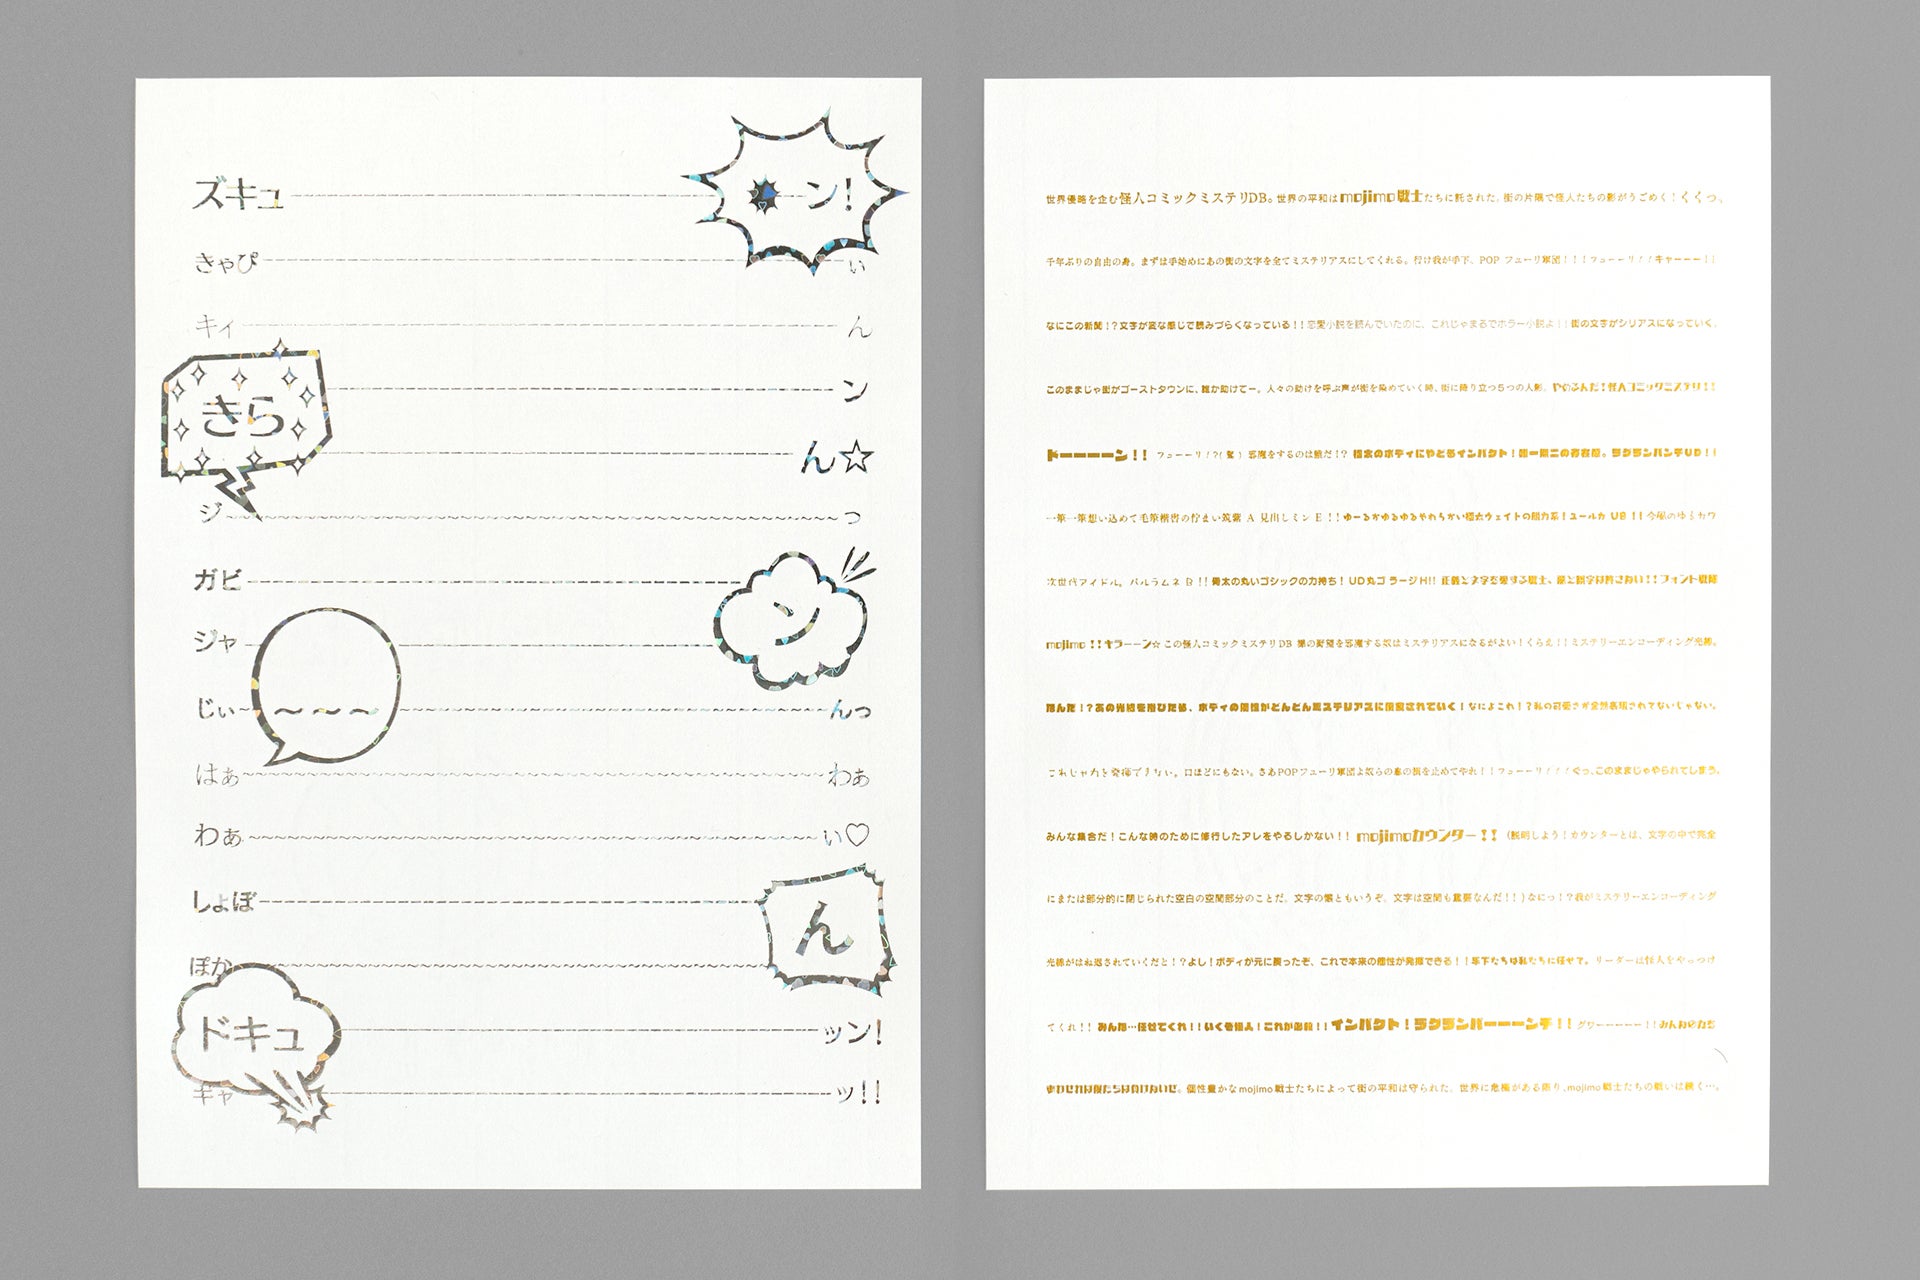 ズキュ ン!
きゃぴ い
キィ ん
ン
きら
ん☆
ジ〜 っ
ガビ ン
ジャ
じぃ〜 〜〜〜 んっ
はぁ わぁ
わぁ い♡
しょぼ ん
ぽか
ドキュ ッン!
ギャ ッ!!
世界侵略を企む怪人コミックミステリDB。世界の平和はmojimo戦士たちに託された。街の片隅で怪人たちの影がうごめく!くくっ、
千年ぶりの自由の身。まずは手始めにあの街の文字を全てミステリアスにしてくれる。行け我が手下、POP フューリ軍団!!!フューーリ!!キャーーー!!
なにこの新聞!?文字が変な感じで読みづらくなっている!!恋愛小説を読んでいたのに、これじゃまるでホラー小説よ!!街の文字がシリアスになっていく。
このままじゃ街がゴーストタウンに、誰か助けてー。人々の助けを呼ぶ声が街を染めていく時、街に降り立つ5つの人影。やめるんだ!怪人コミックミステリ!!
ドーーーーン!! フューーリ!?(驚) 邪魔をするのは誰だ!? 極太のボディにやどるインパクト!唯一無二の存在感。ラグランパンチUB!!
一筆一筆想い込めて毛筆楷書の佇まい筑紫 A 見出しミン E!!ゆーるかゆるゆるやわらかい極太ウェイトの脱力系!ユールカ UB!!今風のゆるカワ
次世代アイドル。パルラムネ B!!骨太の丸いゴシックの力持ち! UD丸ゴ ラージH!! 正義と文字を愛する戦士、
mojimo!!キラーーン☆ この怪人コミックミステリDB 様の野望を邪魔する奴はミステリアスになるがよい!くらえ!!ミステリーエンコーディング光線。
なんだ!?あの光線を浴びたら、ボディの個性がどんどんミステリアスに
なによこれ!?私の可愛さが全然表現されてないじゃない。
これじゃ力を発揮できない。口ほどにもない。さあPOPフューリ軍団よ奴らの息の根を止めてやれ!!フューーリ!!!ぐっ、このままじゃやられてしまう。
みんな集合だ!こんな時のために修行したアレをやるしかない!! mojimoカウンター!! (説明しよう!カウンターとは、文字の中で完全
にまたは部分的に閉じられた空白の空間部分のことだ。文字の懐ともいうぞ。文字は空間も重要なんだ!!)なにっ!?我がミステリーエンコーディング
光線がはね返されていくだと!?よし!ボディが元に戻ったぞ、これで本来の個性が発揮できる!!手下たちは私たちに任せて。リーダーは怪人をやっつけ
てくれ!! みんな…任せてくれ!!いくぞ怪人!これが必殺!!インパクト!ラグランパーーーンチ!! グワーーーーー!!みんなの力を
合わせれば僕たちは負けないぜ。個性豊かなmojimo戦士たちによって街の平和は守られた。世界に危機がある限り、mojimo戦士たちの戦いは続く…。